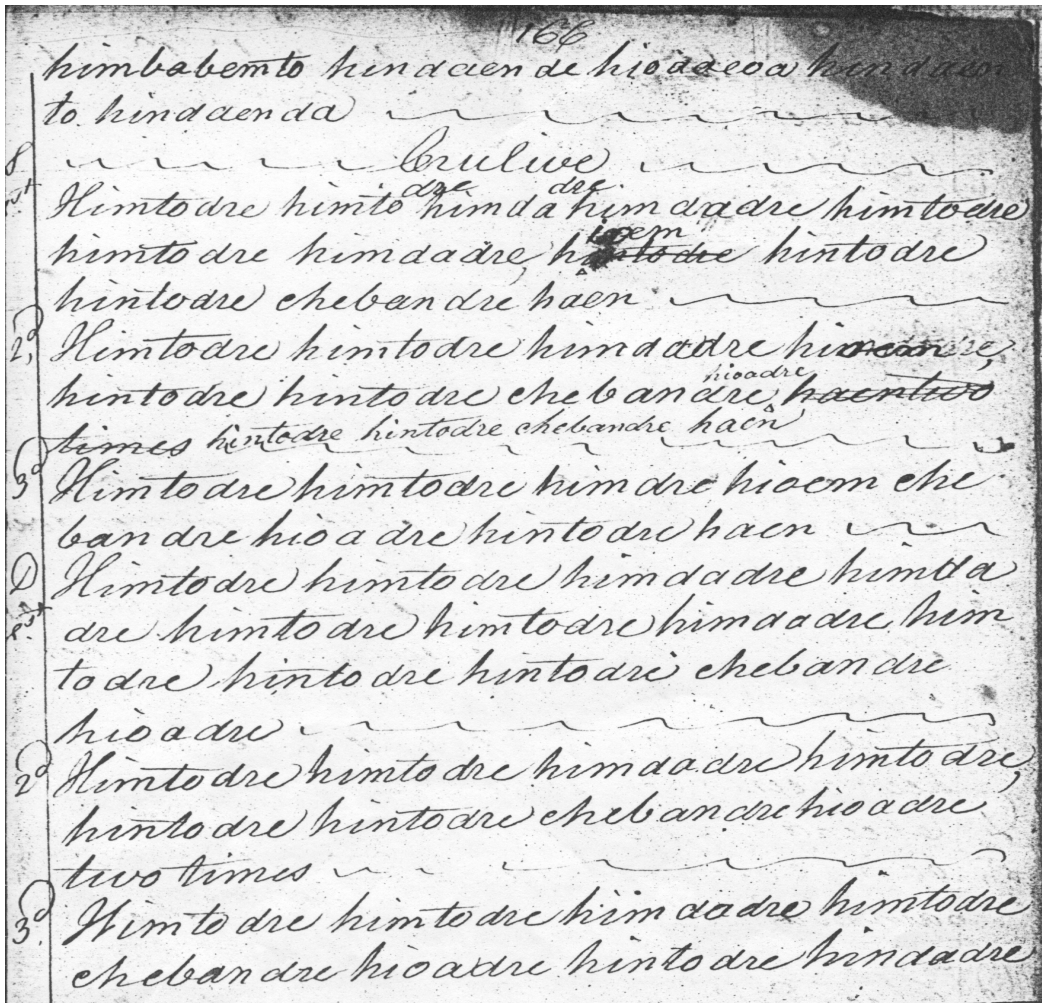 166
himbabemto hindaende hiodaeoa hindaen
to hindaenda
8 Crulive
dre dre
Himtodre himto himda himdadre himtodre
ioem
himtodre himdadre, hintodre hintodre
hintodre chebandre hâen
2,d Himtodre himtodre himdadre
hioadre
hintodre hintodre chebandre, haentwo
times hintodre hintodre chebandre haen
3d Himtodre himtodre himdre hioem che
bandre hioadre hintodre haen
D Himtodre himtodre himdadre himda
dre himtodre himtodre himdadre him
todre hintodre hintodre chebandre
hioadre
2d Himtodre himtodre himdadre himtodre,
hintodre hintodre chebandre hioadre
two times
3d. Himtodre himtodre himdadre himtodre
chebandre hioadre hintodre hindadre